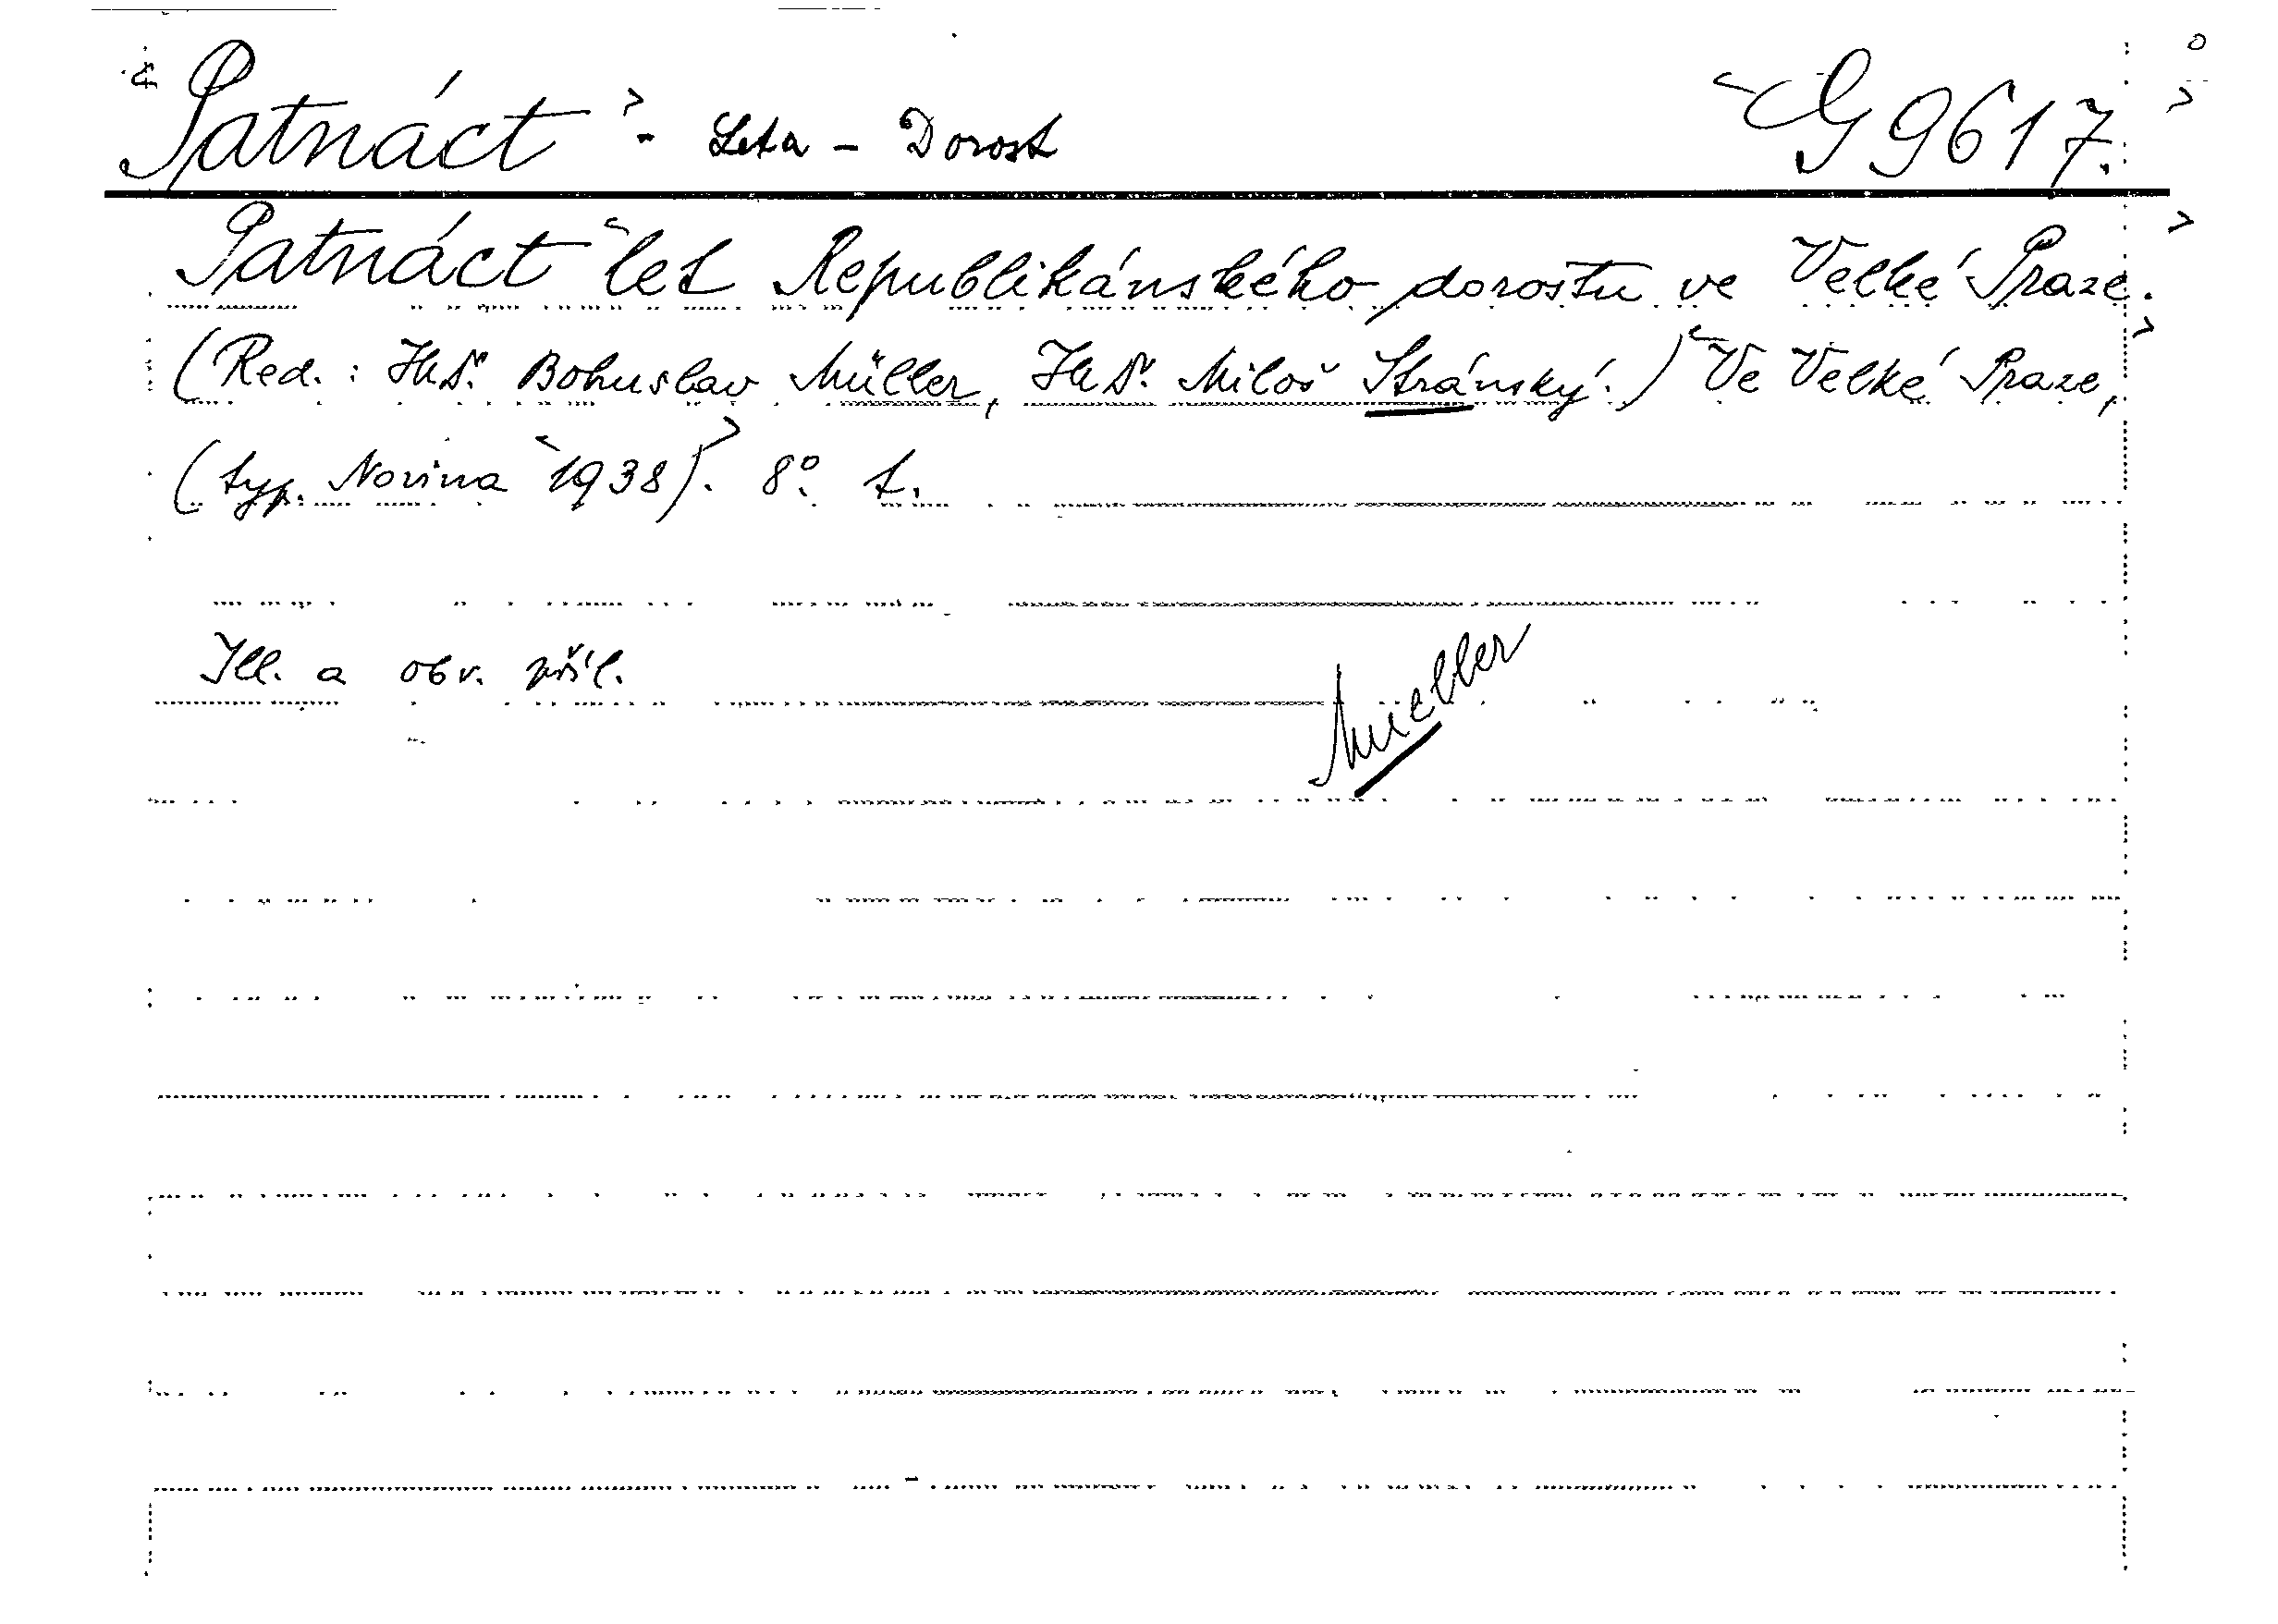 Patnáct - Leta - Dorost G 9617.
Patnáct let Republikánského dorostu ve Velké Praze.
(Red.: Bohuslav Müller, Miloš Stránský.) Ve Velké Praze,
(typ. Novina 1938). 8°. t.
Ill. a obr. příl.
Mueller